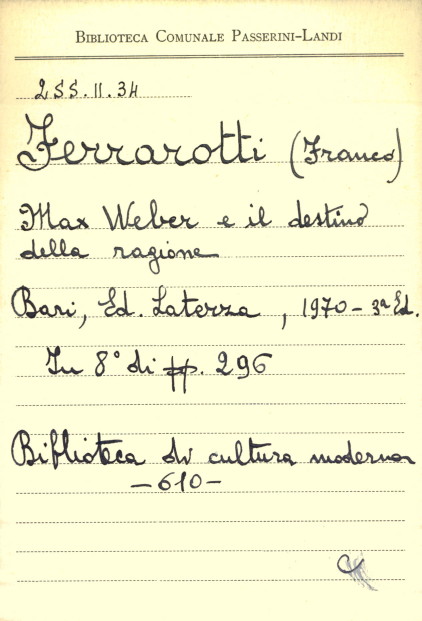 BIBLIOTECA COMUNALE PASSERINI-LANDI
2SS.II.34
Ferrarotti (Franco)
Max Weber e il destino
della ragione
Bari, Ed. Laterza, 1970 - 3ª Ed.
In 8° di pp. 296
Biblioteca di cultura moderna
- 610 -